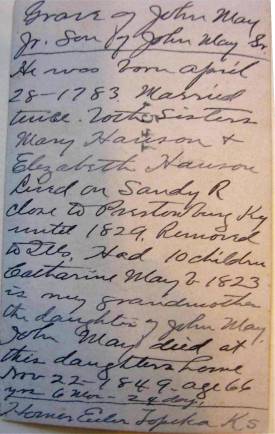 Grave of John May
Jr. Son of John May Sr.
He was born April
28-1783. Married
twice. Both Sisters
Mary Hanson &
Elizabeth Hanson
Lived on Sandy R
close to Prestonburg Ky
until 1829, Removed
to Ills. Had 10 children
Catharine May b 1823
is my grandmother
the daughter of John May.
John May died at
this daughters home
Nov 22-1849. age 66
yrs 6 mos - 24 days.
Homer Euler Topeka Ks